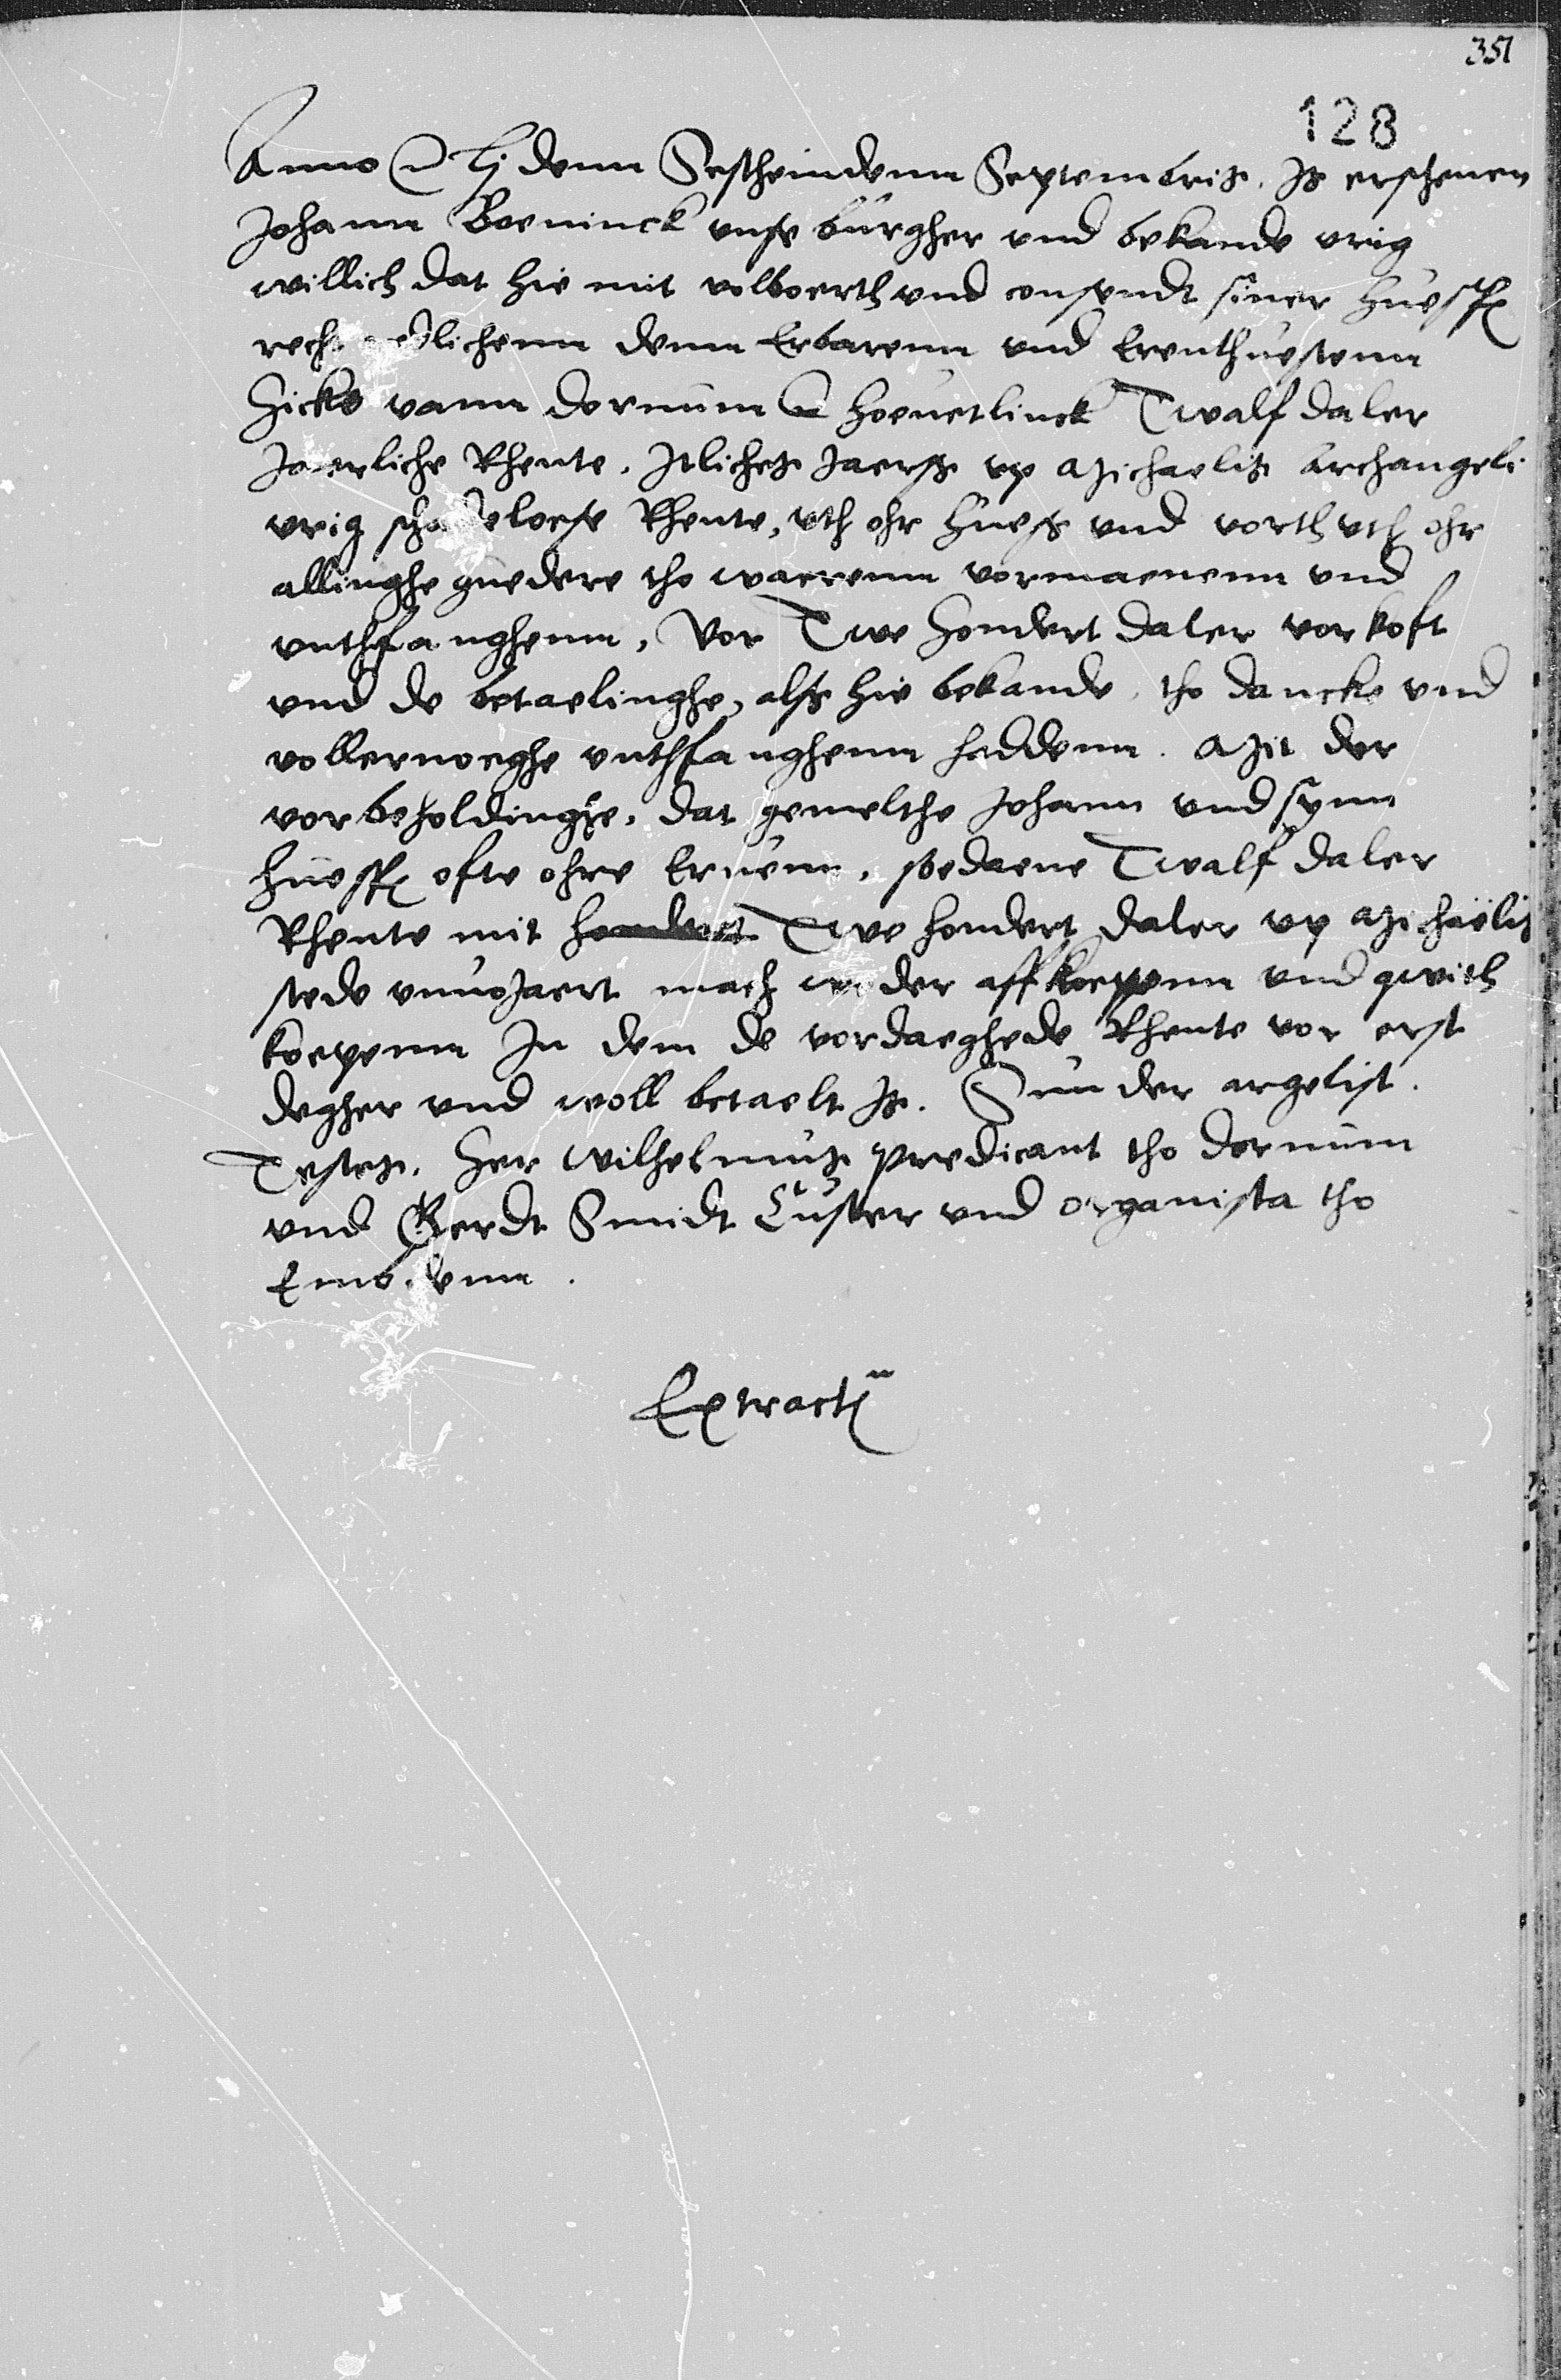 351
128
Anno etc. Lj denn Sestheindenn Septembris. Is erschenen
Johann Boeninck unse burgher und bekande vrig
willich dat hie mit volboerth und consendt siner huesfr
rechtredlichenn denn Erbarenn und Erenthuestenn
Hicke vann Dornum etc. Hoeuetlinck Twalf daler
Jaerliche Rhente. Itliches Jaerss up Michaelis Archangeli
vrig schadeloese Rhente, uth ohr huess und vorth uth ohr
allinghe guedere tho waerenn vormaenenn und
unthfanghenn, Vor Twe hondert daler vorkoft
und de betaelinghe, alss hie bekande, tho dancke und
vollernoeghe unthfanghenn haddenn. Mit der
vorbeholdinghe, dat gemelthe Johann und synn
huesfr ofte ohre Eruenn, soedaene Twalf daler
Rhente mit hondert Twe hondert daler up Michaelis
stede vmmoJaert mach weder affkoepenn und qwith
koepenn In dem de vordaeghede Rhente vor erst
degher und woll betaelt Is. Sunder argelist.
Testes. Her Wilhelmus predicant tho Dornum
und Gerdt Smidt Custer und organista tho
Embdenn.
Extractu